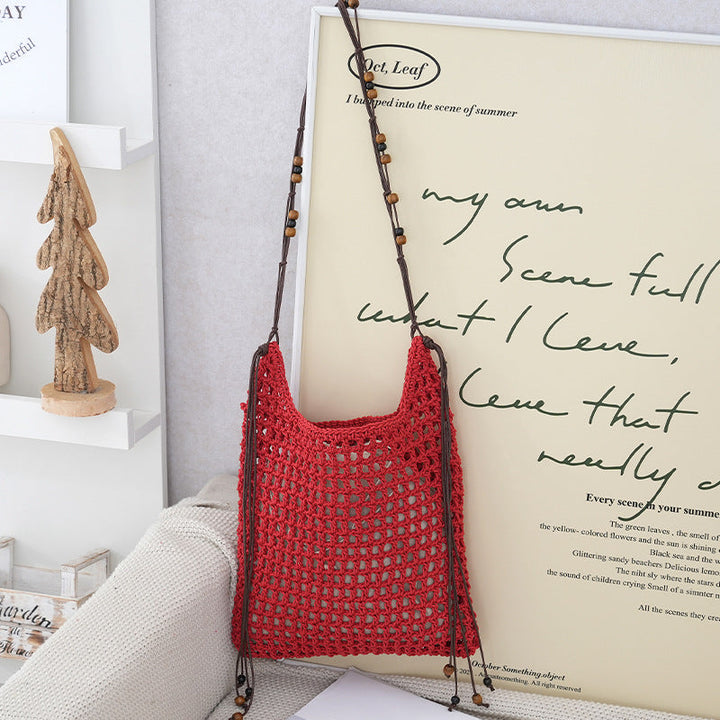 AY
derful
Oct, Leaf
I bumped into the scene of summer
my own
Scene full
what I love,
Love that
really d
Every scene in your summe
The green leaves , the smell of
the yellow- colored flowers and the sun is shining
Black sea and the w
Glittering sandy beaches Delicious lemo
The niht sly where the stars
the sound of children crying Smell of a simnter n
All the scenes they crea
October Something.object
registered 810
Garden
de
Flowe